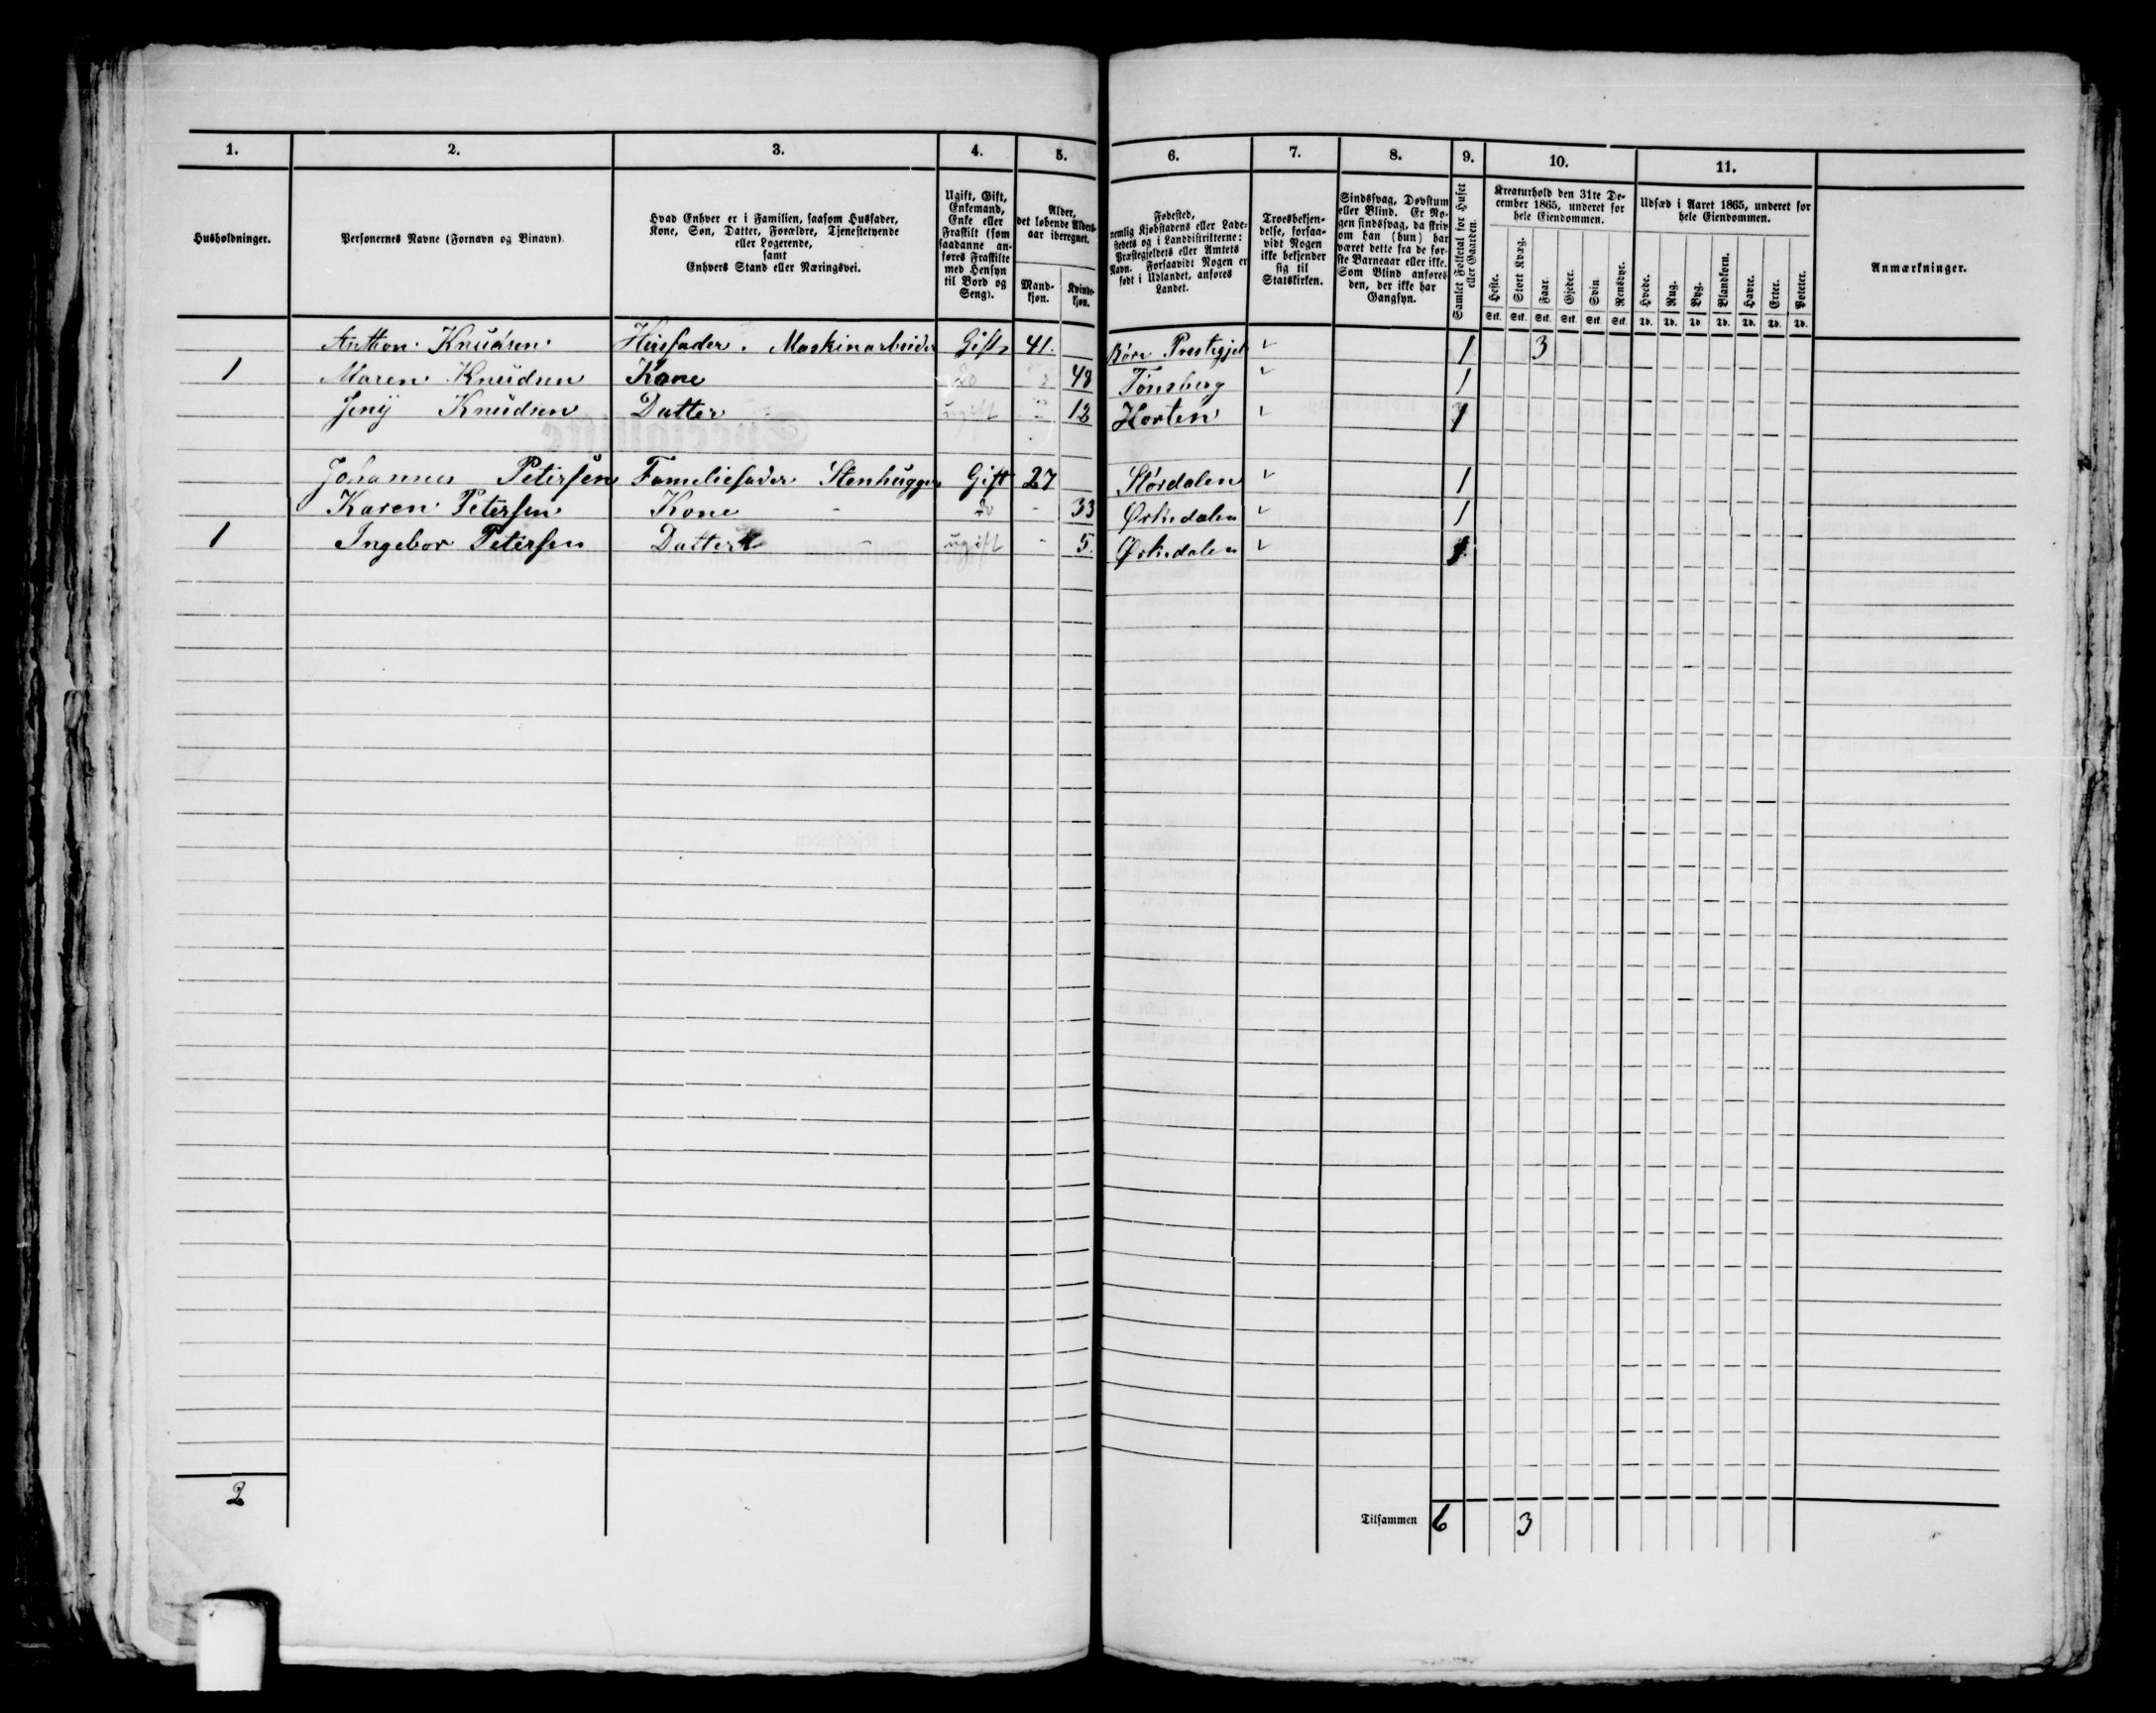 1. 2. 3. 4. 5. 6. 7. 8. 9. 10. 11.
Husholdninger.
Personernes Navne (Fornavn og Binavn).
Hvad Enhver er i Familien, saasom Husfader,
Kone, Søn, Datter, Forældre, Tjenestetyende
eller Logerende,
samt
Enhvers Stand eller Næringsvei.
Ugift, Gift,
Enkemand,
Enke eller
Fraskilt (som
saadanne an-
føres Fraskilte
med Hensyn
til Bord og
Seng).
Alder,
det løbende Alders-
aar iberegnet.
Mand-
kjøn.
Kvinde-
kjøn.
Fødested,
nemlig Kjøbstadens eller Lade-
stedets og i Landdistrikterne:
Præstegjeldets eller Amtets
Navn. Forsaavidt Nogen er
født i Udlandet, anføres
Landet.
Troesbekjen-
delse, forsaa-
vidt Nogen
ikke bekjender
sig til
Statskirken.
Sindssvag, Døvstum
eller Blind. Er No-
gen sindssvag, da skriv
om han (hun) har
været dette fra de før-
ste Barneaar eller ikke.
Som Blind anføres
den, der ikke har
Gangsyn.
Samlet Folketal for Huset
eller Gaarden.
Kreaturhold den 31te De-
cember 1865, underet for
hele Eiendommen.
Heste. Stort Kvæg. Faar. Gjeder. Svin. Rensdyr.
Stk. Stk. Stk. Stk. Stk. Stk.
Udsæd i Aaret 1865, underet for
hele Eiendommen.
Hvede. Rug. Byg. Blandkorn. Havre. Erter. Poteter.
Td. Td. Td. Td. Td. Td. Td.
Anmærkninger.
Anthon Knudsen Huusfader. Maskinarbeider Gift 41. Præstegjeld 1 3
1 Maren Knudsen Kone do 48 Tønsberg 1
Jeny Knudsen Datter ugift 12 Horten 1
Johannes Petersen Familiefader Stenhugger Gift 27 Størdalen 1
Karen Petersen Kone - do - 33 Ørkedalen 1
1 Ingebor Petersen Datter - ugift - 5. Ørkedalen 1
2 Tilsammen 6 3